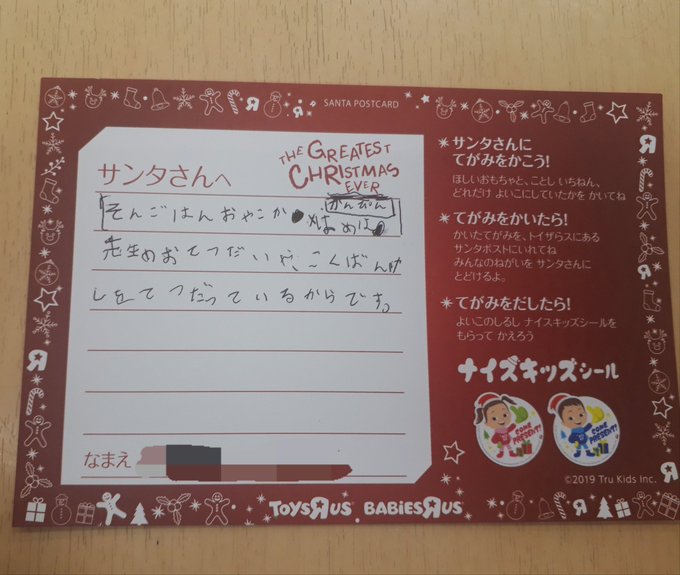 SANTA POSTCARD
THE GREATEST
CHRISTMAS
EVER
サンタさんへ
そんごはんおやこか めはめは
先生のおてつだいや、こくばんけ
しをてつだっているからです。
なまえ
サンタさんに
てがみをかこう!
ほしいおもちゃと、ことし いちねん、
どれだけ よいこにしていたかを かいてね
てがみをかいたら!
かいたてがみを、トイザらスにある
サンタポストにいれてね
みんなのねがいを サンタさんに
とどけるよ。
てがみをだしたら!
よいこのしるし ナイスキッズシールを
もらって かえろう
ナイスキッズシール
COME
PRESENT!
COME
PRESENT!
©2019 Tru Kids Inc.
TOYSRUS BABIESRUS